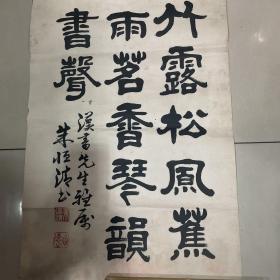 竹露松風蕉
雨茗香琴韻
書聲
漢書先生雅屬
朱恒清書